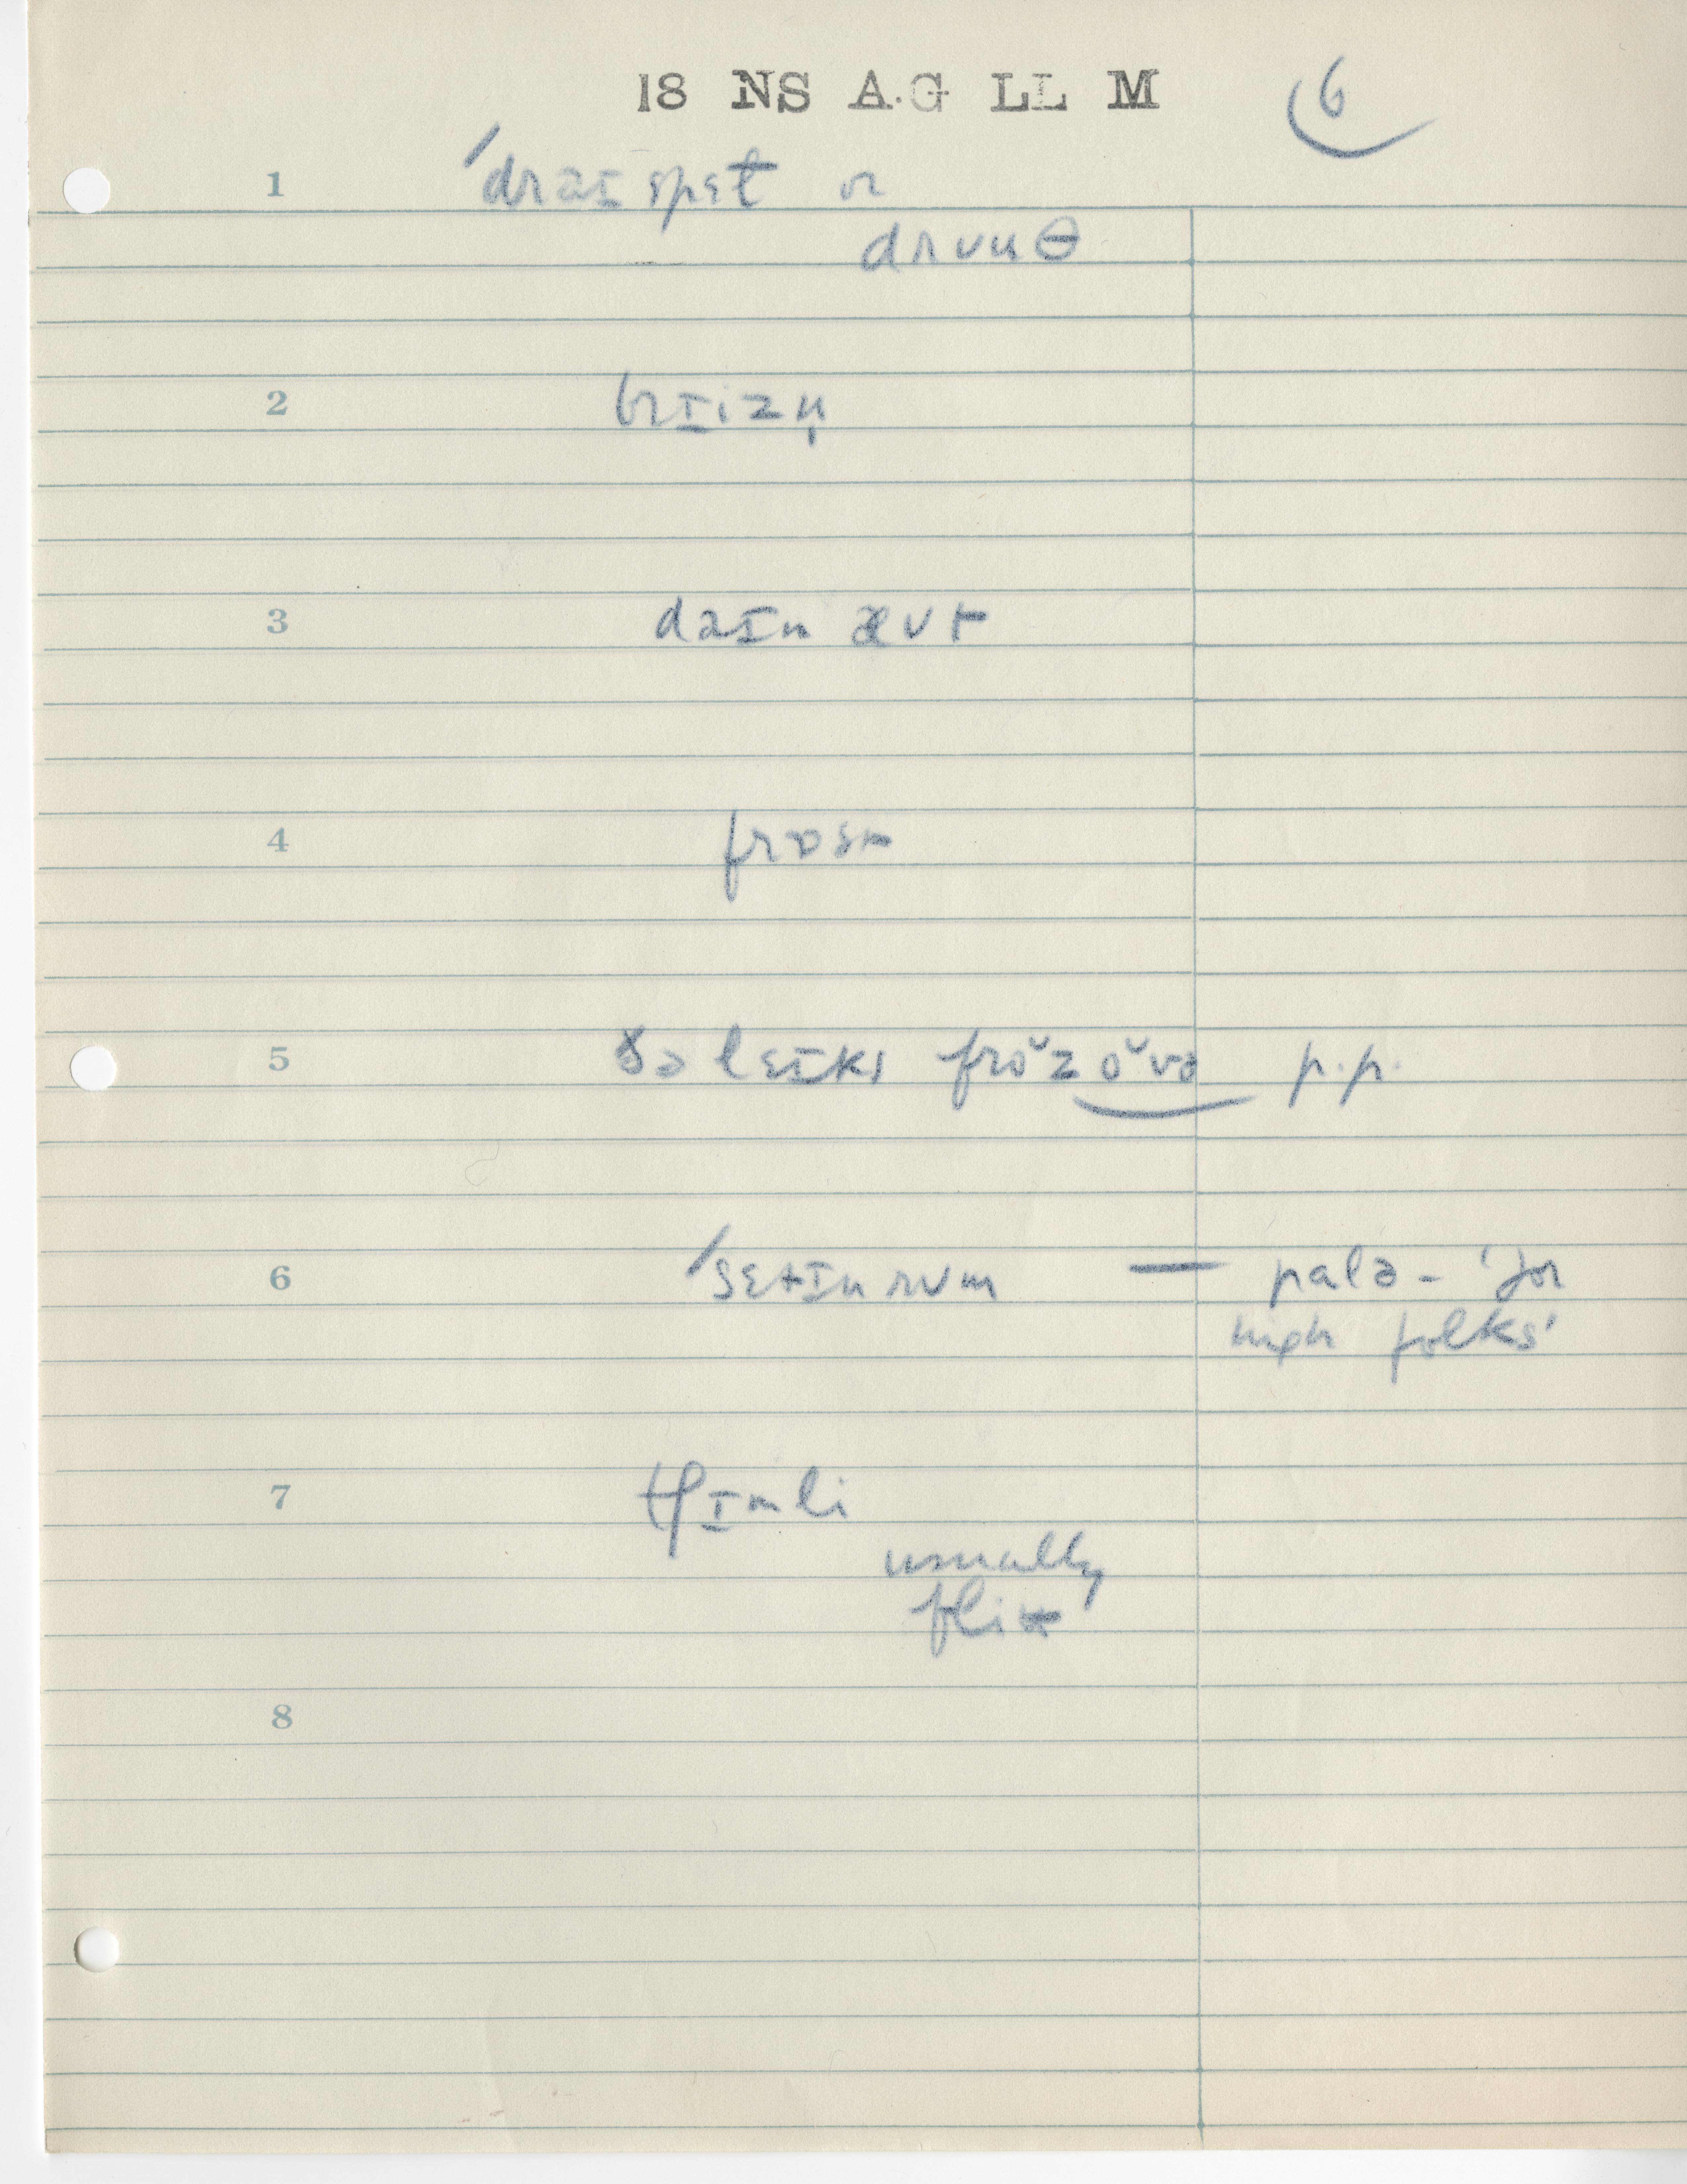 18 NS A.G LL M 6
1 ˈdraɪ spɛt or
drʋuθ
2 brɪizn̩
3 daɪn æʊt
4 frɒst
5 ðə leɪks frŏz ŏvə p.p.
6 ˈsɛtɪn rʊm — palə - 'for
high folks'
7 tʃɪmli
usually
8